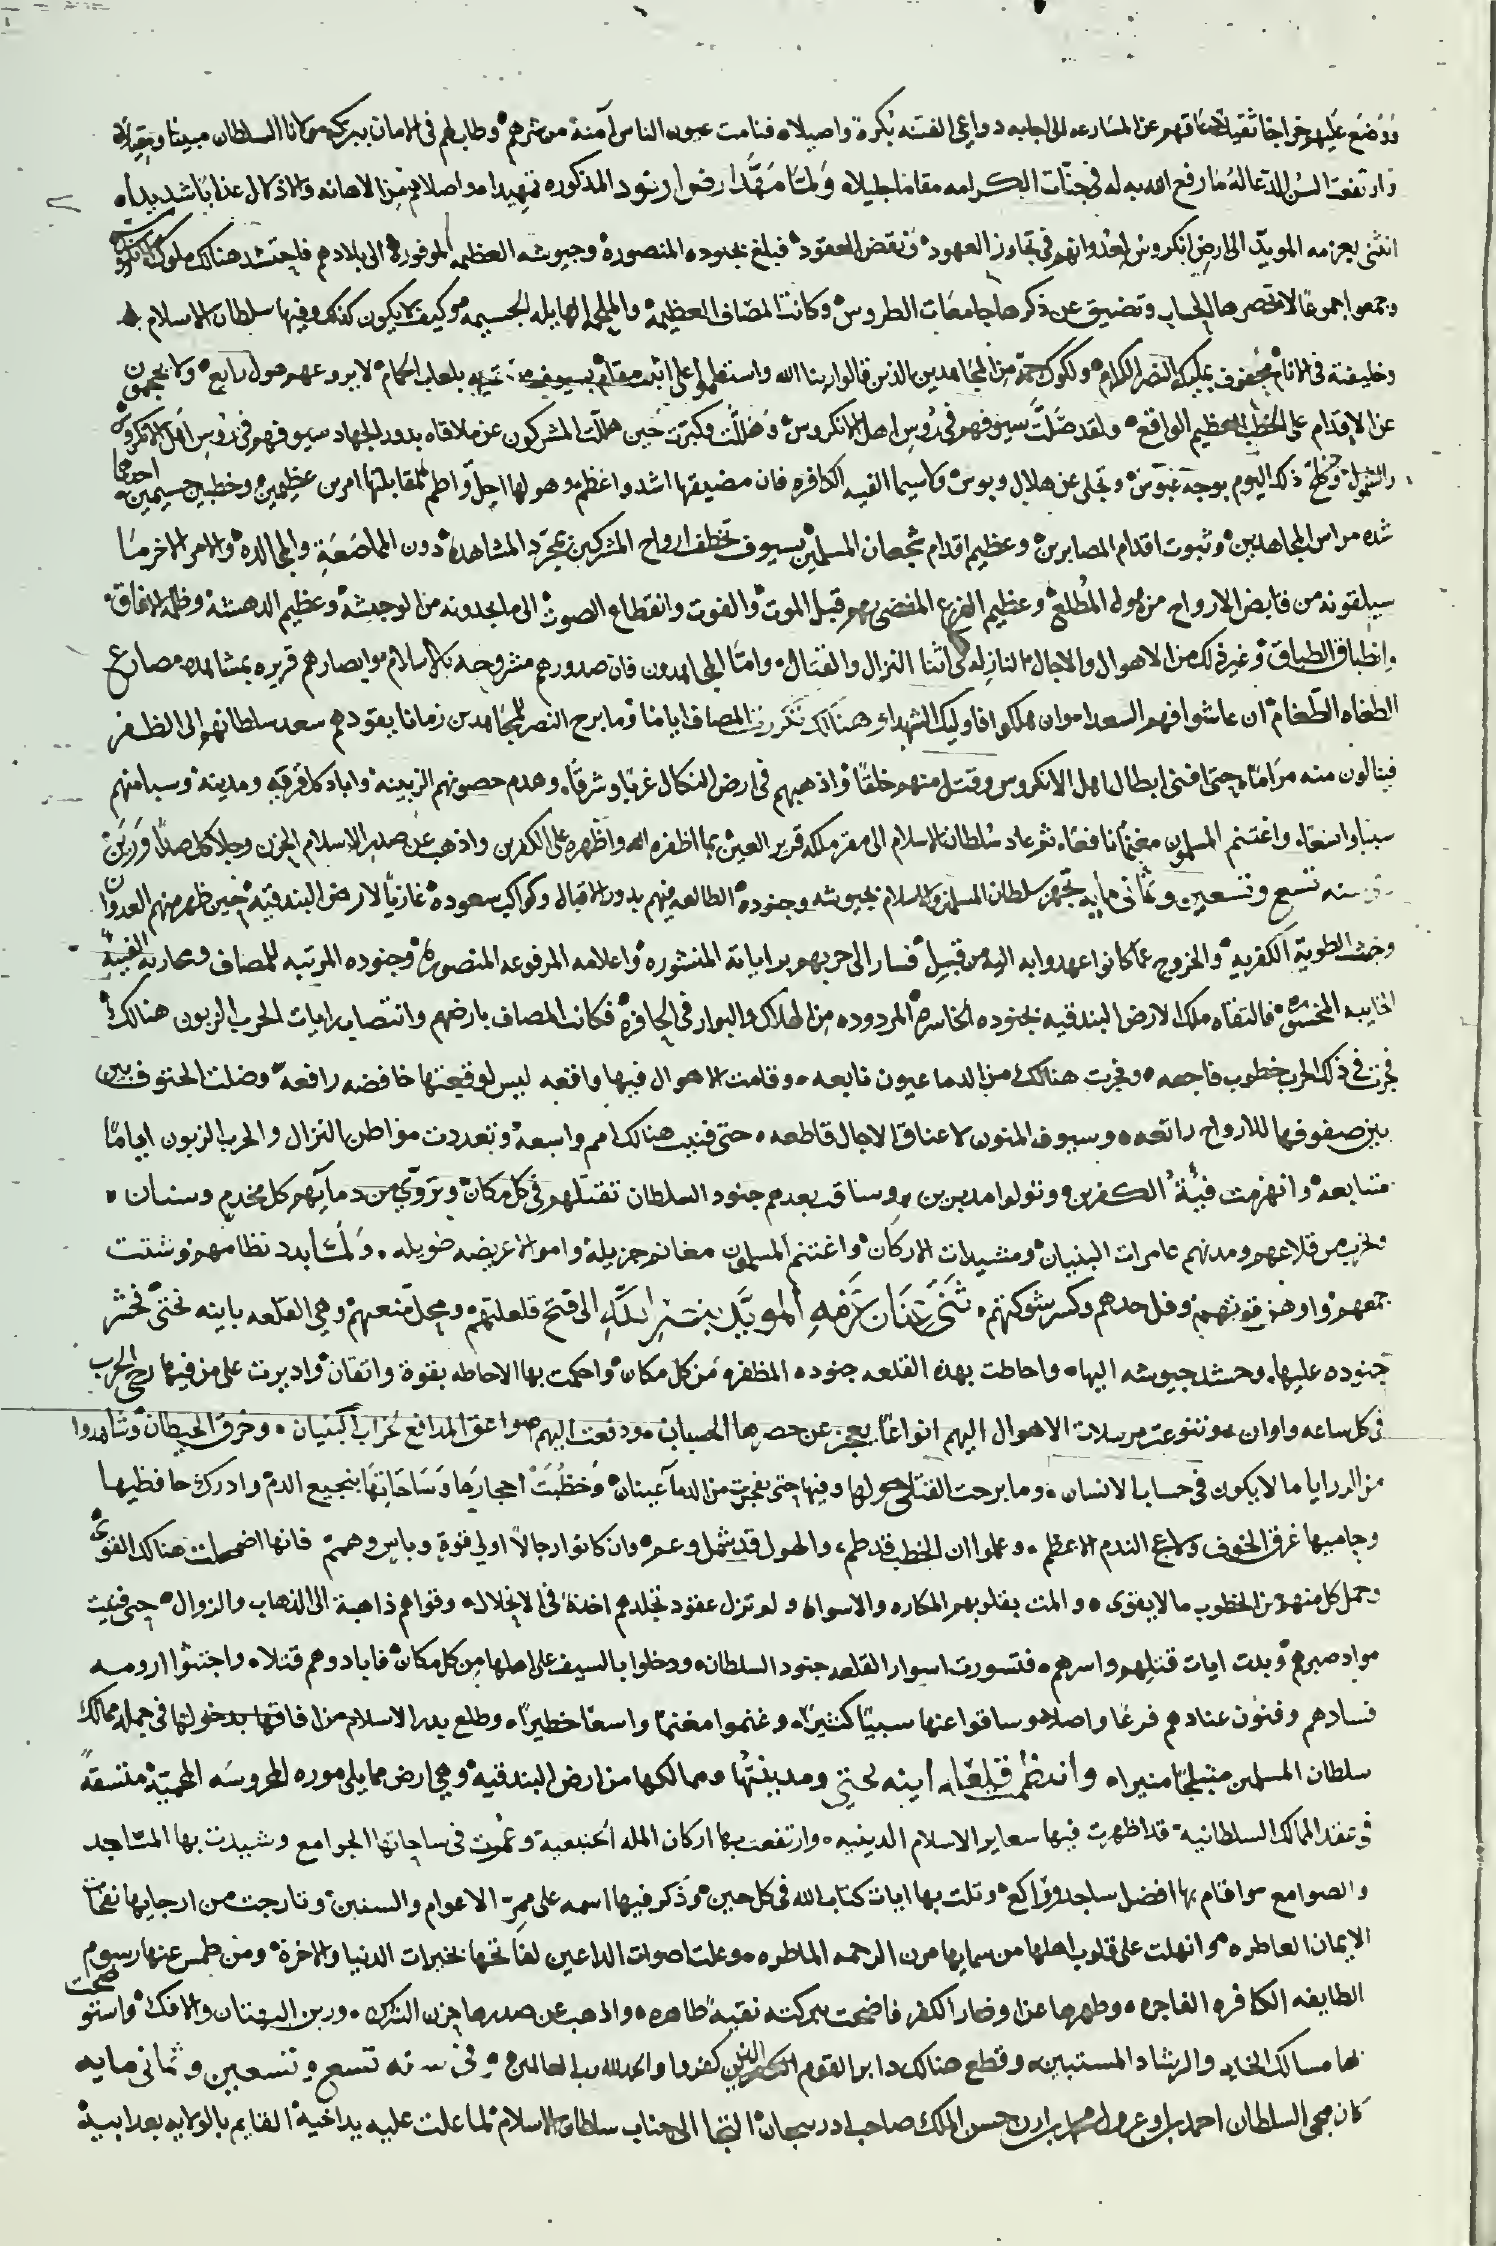 ووضع عليهم خراجا ثقيلا عاقهم عن المسارعه الى اجابه دواعي الفتنه بكرة واصيلاه فنامت عيون الناس آمنة من شرهم وطاب لهم في الامان ببركة مولانا السلطان مبيتا ومقيلاه
وارتفعت السن الدعا له ما رفع الله به له في جنات الكرامه مقاما جليلاه ولما مهد ارض ارنود المذكوره تمهيدا مواصلا من الاهانه والاذلال عذابا شديداه
انثنى بعزمه المويد الى ارض انكروس لعدوانهم في تجاوز العهود ونقض العقود فبلغ بجنوده المنصورة وجيوشه العظيمه الموفورة الى بلادهم فاحتشد هنالك ملوك
وجمعوا جموعا لا تحصرها الحساب وتضيق عن ذكرها جامعات الطروس وكانت المصاف العظيمة والملحمه الهايله الجسيمه وكيف لا يكون كذلك وفيها سلطان الاسلام
وخليفته في الانام محفوف بملايكة النصر الكرام ولكونه من المجاهدين الذين قالوا ربنا الله واستقاموا على اثبت مقام بسيوف لا يروعهم هول رايع ولا يحجمون
عن الاقدام على الخطب العظيم الواقع ولقد صلت سيوفهم في روس اهل الانكروس وهللت وكبرت حين هللت المشركون عن ملاقاه بدور الجهاد سيوفهم في روس اهل الانكروس
وكلح ذلك اليوم بوجه عبوس وتجلى عن هلال وبوس ولاسيما الفيه الكافره فان مضيقها اشد واعظم وهولها اجل واطم لمقابلتها امرين عظيمين وخطبين جسيمين احدهما
شده مراس المجاهدين وثبوت اقدام المصابرين وعظيم اقدام شجعان المسلمين بسيوف تخطف ارواح المشركين بمجرد المشاهدة دون المماصعة والمجالدة والامر الاخر ما
سيلقونه من قابض الارواح من هول المطلع وعظيم الفزع المفضي بهم قبل الموت والفوت وانقطاع الصوت الى ما يجدونه من الوحشة وعظيم الدهشة وظلمة الافاق
وانطباق الطباق وغير ذلك من الاهوال والاجال النازله في اثنا النزال والقتال واما المجاهدون فان صدورهم منشروحه بالاسلام وابصارهم قريره بمشاهده مصارع
الطغاه الطغام ان عاشوا فهم السعدا وان هلكوا فاوليك الشهداء هنالك تكررت المصاف اياما وما برح النصر للمجاهدين زماما يقودهم سعد سلطانهم الى الظفر
فينالون منه مراماه حتى افنى ابطال اهل الانكروس وقتل منهم خلقا واذهبهم في ارض النكال غربا وشرقاه وهدم حصونهم الزبينه واباد كل قرية ومدينة وسبا منهم
سبيا واسعاه واغتنم المسلمون مغنما نافعاه ثم عاد سلطان الاسلام الى مقر ملكه قرير العين بما اظفره الله واظهره على الكفرين واذهب عن صدر الاسلام الحزن وجلا كل صدا ورين
سنه تسع وتسعين وثماني مايه تجهز سلطان المسلمين والاسلام بجيوشه وجنوده الطالعه فيهم بدور الاقبال وكواكب سعوده غازيا لارض البندقية حين ظهر منهم العدوان
وخبث الطوية الكفريه والخروج عما كانوا عهدوا به اليه من قبل فسار الى حربهم براياته المنشوره واعلامه المرفوعه المنصوره وجنوده المرتبه للمصاف ومحاربه الفية
الخايبه المخسورة فالتقاه ملك الارض البندقيه بجنوده الخاسرة المردوده من الهلاك والبوار في الحافرة فكانت المصاف بارضهم وانتصاب رايات الحرب الزبون هنالك
فجرت في ذلك الحرب خطوب فاجعه وفجرت هنالك من الدما عيون نابعه وقامت الاهوال فيها واقعه ليس لوقعتها خافضه رافعه وضلت الحتوف بين
بين صفوفها للارواح رائعه وسيوف المنون لاعناق الاجال قاطعه حتى فنيت هنالك امم واسعه وتعددت مواطن النزال والحرب الزبون اياما
متتابعه وانهزمت فية الكفرين وتولوا مدبرين وساقت بعدهم جنود السلطان تقتلهم في كل مكان وتروي من دمآيهم كل مخدم وسنان
وخرب من قلاعهم ومدنهم عامرات البنيان ومشيدات الاركان واغتنم المسلمون مغانم جزيلة واموالا عريضه طويله ولما بدد نظامهم وشتت
جمعهم واوهن قوتهم وفل حدهم وكسر شوكتهم ثنى عنان عزمه المويد بنصر الله الى فتح قلعتهم ومحل منعتهم وهي القلعه باينه نختى فحشر
جنوده عليها وحشد جيوشه اليها واحاطت بهذه القلعه جنوده المظفره من كل مكان واحكمت بها الاحاطه بقوة واتقان وادبرت على من فيها رحى الحرب
في كل ساعه واوان وتنوعت مرسلات الاهوال اليهم انواعا يعجز عن حصرها الحسبان ودفعت اليهم صواعق المدافع لخراب البنيان وخرق الحيطان وشاهدوا
من الرزايا ما لا يكون في حساب الانسان وما برحت القتلى حولها وفيها حتى تفجرت من الدما عينان وخضبت احجارها وساحاتها بنجيع الدم وادرك حافظيها
وحاميها غرق الخوف ولاع الندم الاعظم وعلموا ان الخطب قد طم والهول قد شمل وعم وان كانوا رجالا اولي قوة وباس وهمم فانها اضمحلت هنالك القوى
وحمل كل منهم من الخطوب ما لا يقوى والمت بقلوبهم المكاره والاسواء ولم تزل عقود تجلدهم اخذة في الانحلال وقواهم ذاهبة الى الذهاب والزوال حتى فنيت
مواد صبرهم وبدت ايات قتلهم واسرهم فتسورت اسوار القلعه جنود السلطان ودخلوا بالسيف على اهلها من كل مكان فابادوهم قتلاه واجتثوا ارومه
فسادهم وفنون عنادهم فرعا واصلا وساقوا عنها سبيا كثيراه وغنموا مغنما واسعا خطيراه وطلع بدر الاسلام من افاقها بدخولها في جمله ممالك
سلطان المسلمين متبلجا منيراه وانتظمت قلعة اينه لختي ومدينتها وممالكها من ارض البندقيه وهي ارض مما يلي موره المحروسه المحمية متسقة
في عقد الممالك السلطانية قد اظهرت فيها شعاير الاسلام الدينيه وارتفعت بها اركان المله الحنيفية وعمرت في ساحاتها الجوامع وشيدت بها المساجد
والصوامع واقام بها افضل ساجد وراكع وتلت بها ايات كتاب الله في كل حين وذكر فيها اسمه على ممر الاعوام والسنين وتارجت من ارجايها نفحات
الايمان العاطره وانهلت على قلوب اهلها من سمايها مزن الرحمه الماطره وعلت اصوات الداعين لفاتحها بخيرات الدنيا والاخرة ومن طمس عنها رسوم
الطايفه الكافره الفاجره وطهرها عن اوضار الكفر فاضحت ببركته نقية طاهره واذهب عن صدرها حزن الشرك ورين البهتان والافك واستوضحت
بها مسالك الخير والرشاد المستبين وقطع هنالك دابر القوم الذين كفروا والحمد لله رب العالمين وفي سنه تسع وتسعين وثماني مايه
كان مجي السلطان احمد بن اوغرلو محمد بن اوزن حسن الملك صاحب ادربيجان التجا الى جناب سلطان الاسلام لما علت عليه يد اخيه القايم بالولايه بعد ابيه